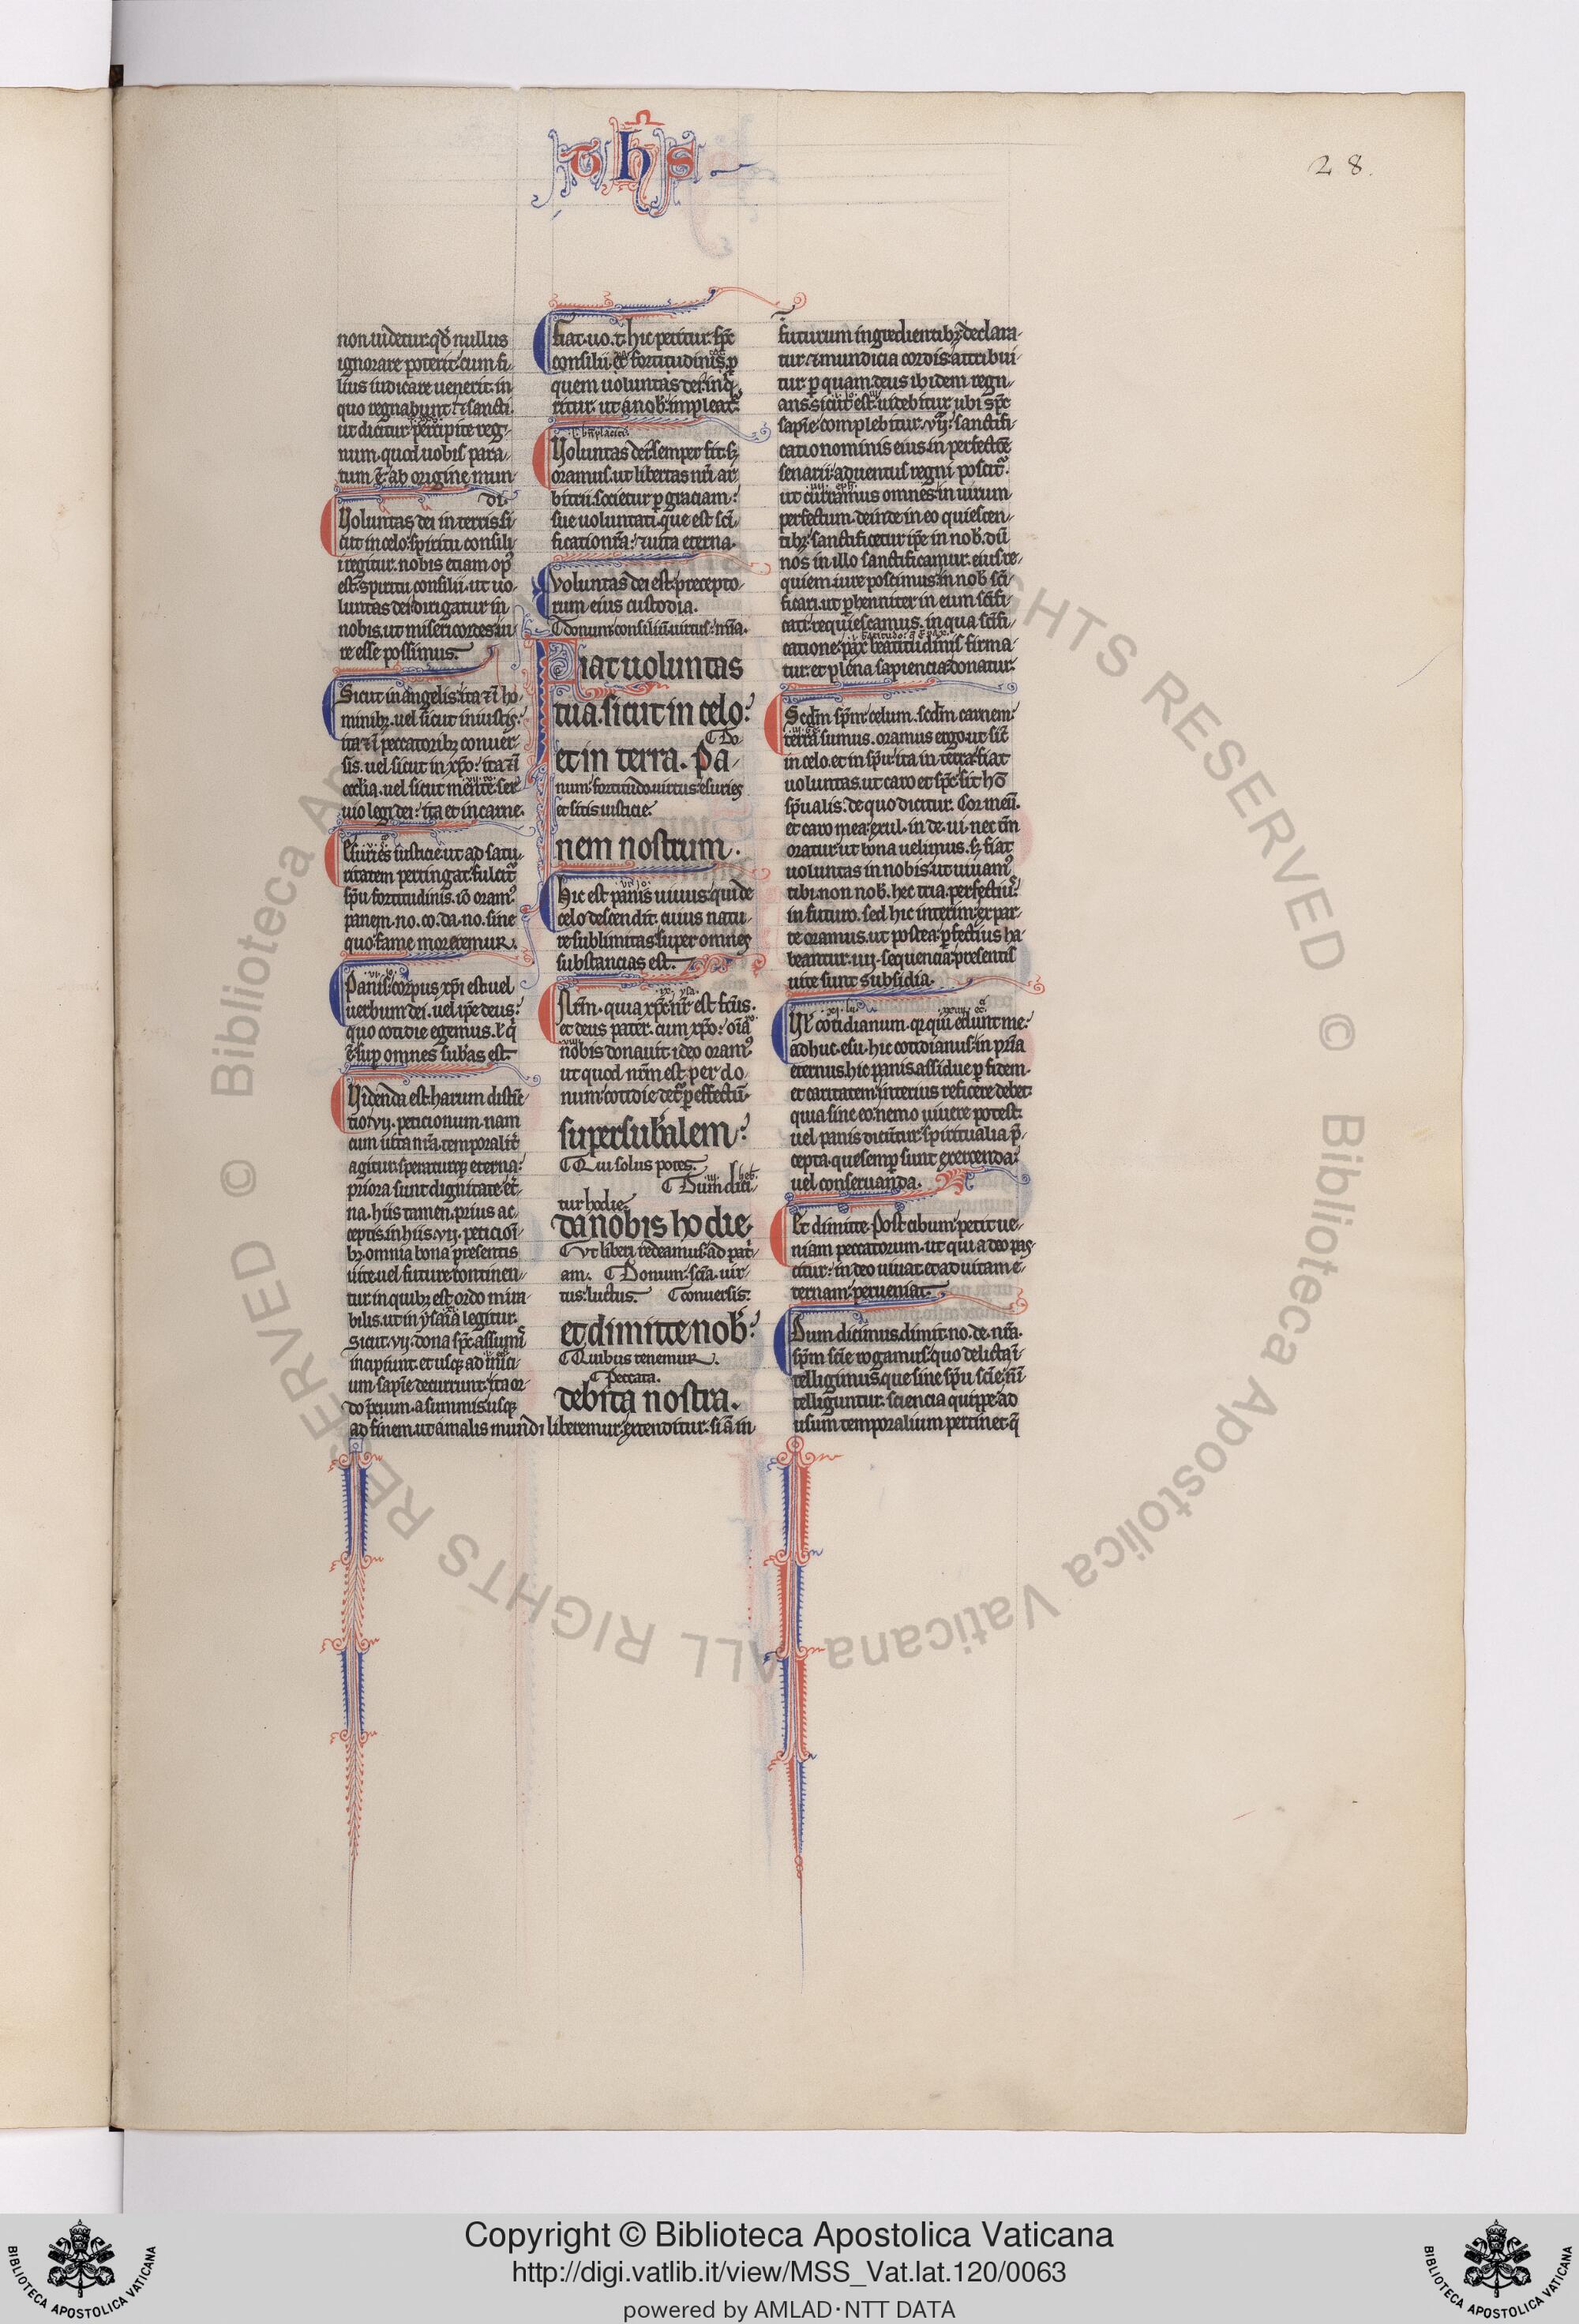 T h S
28.
non uidetur. qd nullus
ignorare poterit cum fi-
lius iudicare uenerit. in
quo regnabunt sancti.
ut dicitur. percipite reg-
num. quod uobis para-
tum ē ab origine mun-
di.
Voluntas dei in terris si-
cut in celo. spiritu consili-
i regitur. nobis etiam op
est spiritu consilii. ut uo-
luntas dei dirigatur in
nobis. ut misericordes iu-
re esse possimus.
Sicut in angelis. ita ho-
minibz. uel sicut in iustis.
ita peccatoribz conuer-
sis. uel sicut in xpo. ita
ecclia. uel sicut mente ser-
uio legi dei. ita et in carne.
Esuries iusticie ut ad satu-
ritatem pertingat. fulcit
spu fortitudinis. io oram
panem. no. co. da. no. sine
quo fame moreremur.
Panis. corpus xpi est uel
uerbum dei. uel ipe deus.
quo cotidie egemus. l q
ē sup omnes subas est.
Videnda est harum distinc-
tio. vij. peticionum. nam
cum uita nra. temporalit
agitur. speraturqz eterna.
priora sunt dignitate et-
na. hiis tamen prius ac-
ceptis. in hiis. vij. peticioi-
bz. omnia bona presentis
uite uel future continen-
tur. in quibz est ordo mira-
bilis. ut in ysaia legitur.
Sicut. vij. dona spc assumi
incipiunt. et usqz ad inici-
um sapie decurrunt. ita or-
do precum. a summis usqz
ad finem. ut a malis mundi liberemur. extenditur. si a in
fiat. uo. t. hic petitur. spc
consilii et fortitudinis. p
quem uoluntas dei. inq
ritur. ut a nob impleat.
Voluntas dei semper fit. sz
oramus. ut libertas nri ar-
bitrii. societur p graciam.
sue uoluntati. que est sci-
ficatio nra. uita eterna.
Voluntas dei est. precepto-
rum eius custodia.
donum consilium uirtus. mia.
Fiat uoluntas
tua. sicut in celo.
Do-
et in terra. Pa-
num fortitudo. uirtus esuries
et sitis iusticie.
nem nostrum.
Hic est panis uiuus. qui de
celo descendit. cuius natu-
re sublimitas super omnes
substancias est.
Nrm. quia xpc nr est fcus.
et deus pater. cum xpo. oia
nobis donauit. ideo oram
ut quod nrm est per do-
num. cotidie det p effectu.
supersubalem.
Qui solus potes.
Dum dici-
tur hodie.
da nobis hodie.
Vt liberi redeamus ad patri-
am. Donum. scia. uir-
tus. luctus. conuersis.
et dimitte nob.
Quibus tenemur.
peccata.
debita nostra.
futurum ingredientibz. declara-
tur. mundicia cordis attribui-
tur. p quam deus ibidem regn-
ans. sicut est uidebitur. ubi spc
sapie complebitur. vij. sanctifi-
catio nominis eius. in perfectoe
senarii. aduentus regni poscit.
ut curramus omnes in uirum
perfectum. deinde in eo quiescen-
tibz. sanctificetur ipe in nob. du
nos in illo sanctificamur. eius re-
quiem iure poscimus. in nob sci-
ficari. ut phenniter in eum scifi-
cati. requiescamus. in qua scifi-
catione pax beatitudinis firma-
tur. et plena sapiencia donatur.
Scdm spm. celum. scdm carnem.
terra sumus. oramus ergo ut sic
in celo. et in spu. ita in terra fiat
uoluntas. ut caro et spc. sit ho
spualis. de quo dicitur. Cor meu.
et caro mea. exul. in de. ui. nec tm
oratur. ut bona uelimus. sz fiat
uoluntas in nobis. ut uiuam
tibi. non nob. hec tria. perfectius
in futuro. sed hic interim. ex par-
te oramus. ut postea pfectius ha-
beantur. iiij. sequencia. presentis
uite sunt subsidia.
Vl cotidianum. qr qui edunt me.
adhuc esu. hic cotidianus. in pria
eternus. hic panis. assidue p fidem.
et caritatem. interius reficere debet.
quia sine eo. nemo uiuere potest.
uel panis dicuntur. spiritualia p-
cepta. que semp sunt exercenda.
uel conseruanda.
Et dimitte. Post cibum. petit ue-
niam peccatorum. ut qui a deo pas-
citur. in deo uiuat. et ad uitam e-
ternam perueniat.
Dum dicimus dimit. no. de. nra.
spm scie rogamus. quo delicta i-
telligimus. que sine spu scie. ni
telliguntur. sciencia quippe. ad
usum temporalium pertinet. q
ALL RIGHTS RESERVED © Biblioteca Apostolica Vaticana
Copyright © Biblioteca Apostolica Vaticana
http://digi.vatlib.it/view/MSS_Vat.lat.120/0063
powered by AMLAD·NTT DATA
BIBLIOTECA APOSTOLICA VATICANA
BIBLIOTECA APOSTOLICA VATICANA